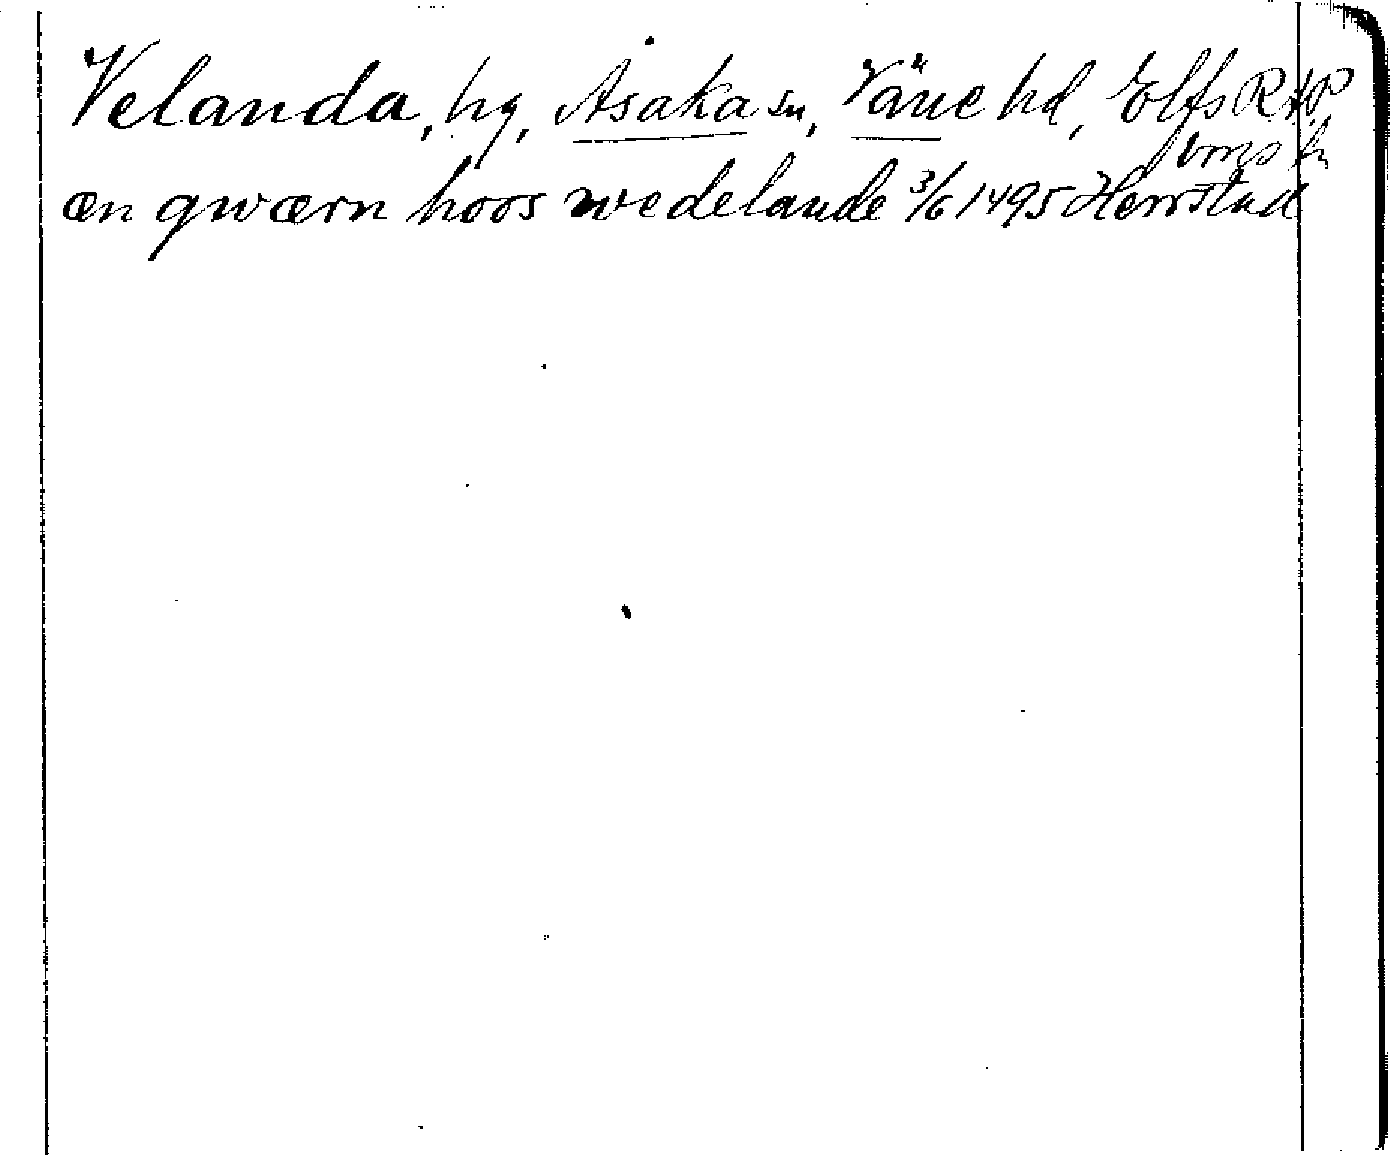 Velanda, hg, Åsaka sn, Väne hd, Elfs
æn qwærn hoos wedelande 3/6 1495 Herrstad